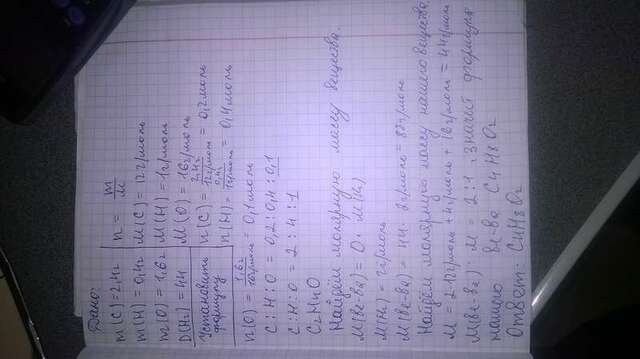 Дано:
m(C)=2,4г
m(H)=0,4г
m(O)=1,6г
D(H2)=44
Установить
формулу
n = m/M
M(C)=12г/моль
M(H)=1г/моль
M(O)=16г/моль
n(C)= 2,4г/12г/моль = 0,2моль
n(H)= 0,4г/1г/моль = 0,4моль
n(O)= 1,6г/16г/моль = 0,1моль
C:H:O = 0,2:0,4:0,1
C:H:O = 2:4:1
C2H4O
Найдём молярную массу вещества.
M(В-ва)=D·M(H2)
M(H2)=2г/моль
M(В-ва)=44·2г/моль=88г/моль
Найдём молярную массу нашего вещества
M=2·12г/моль+4г/моль+16г/моль=44г/моль
M(В-ва):M=2:1, значит формула
нашего в-ва C4H8O2
Ответ: C4H8O2